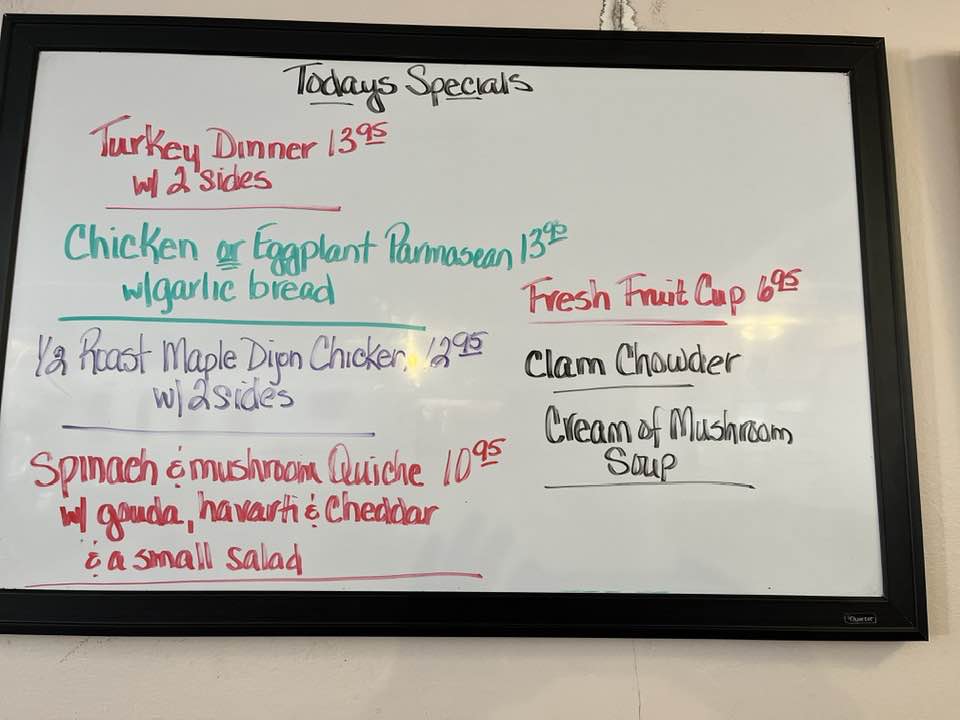 Todays Specials
Turkey Dinner 13 95
w/ 2 sides
Chicken or Eggplant Parmasean 13 95
w/garlic bread
1/2 Roast Maple Dijon Chicken 12 95
w/ 2 sides
Spinach & mushroom Quiche 10 95
w/ gouda, havarti & Cheddar
& a small salad
Fresh Fruit Cup 6 95
Clam Chowder
Cream of Mushroom
Soup
Quartet